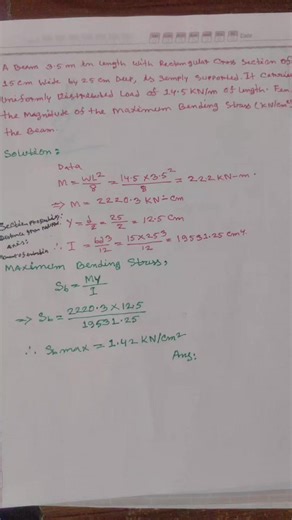 A Beam 3.5 m in Length With Rectangular Cross Section of
15 Cm Wide by 25 Cm Deep, is Simply Supported. It Carries
Uniformly Distributed Load of 14.5 KN/m of Length. Fen
the Magnitude of the Maximum Bending Stress (KN/cm²)
the Beam.
Solution:
Data
M = WL²/8 = 14.5 X 3.5²/8 = 222 KN-m.
⇒ M = 2220.3 KN-Cm
Section
Distance from
axis:
Y = d/2 = 25/2 = 12.5 Cm
∴ I = bd3/12 = 15X253/12 = 19531.25 cm4.
Maximum Bending Stress,
Sb = MY/I
⇒ Sb = 2220.3 X 12.5/19531.25
∴ Sb max = 1.42 KN/cm²
Ans: